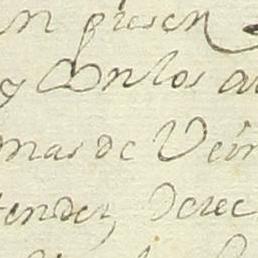 n presen
y Con los a
mas de Vein
tender, Derec